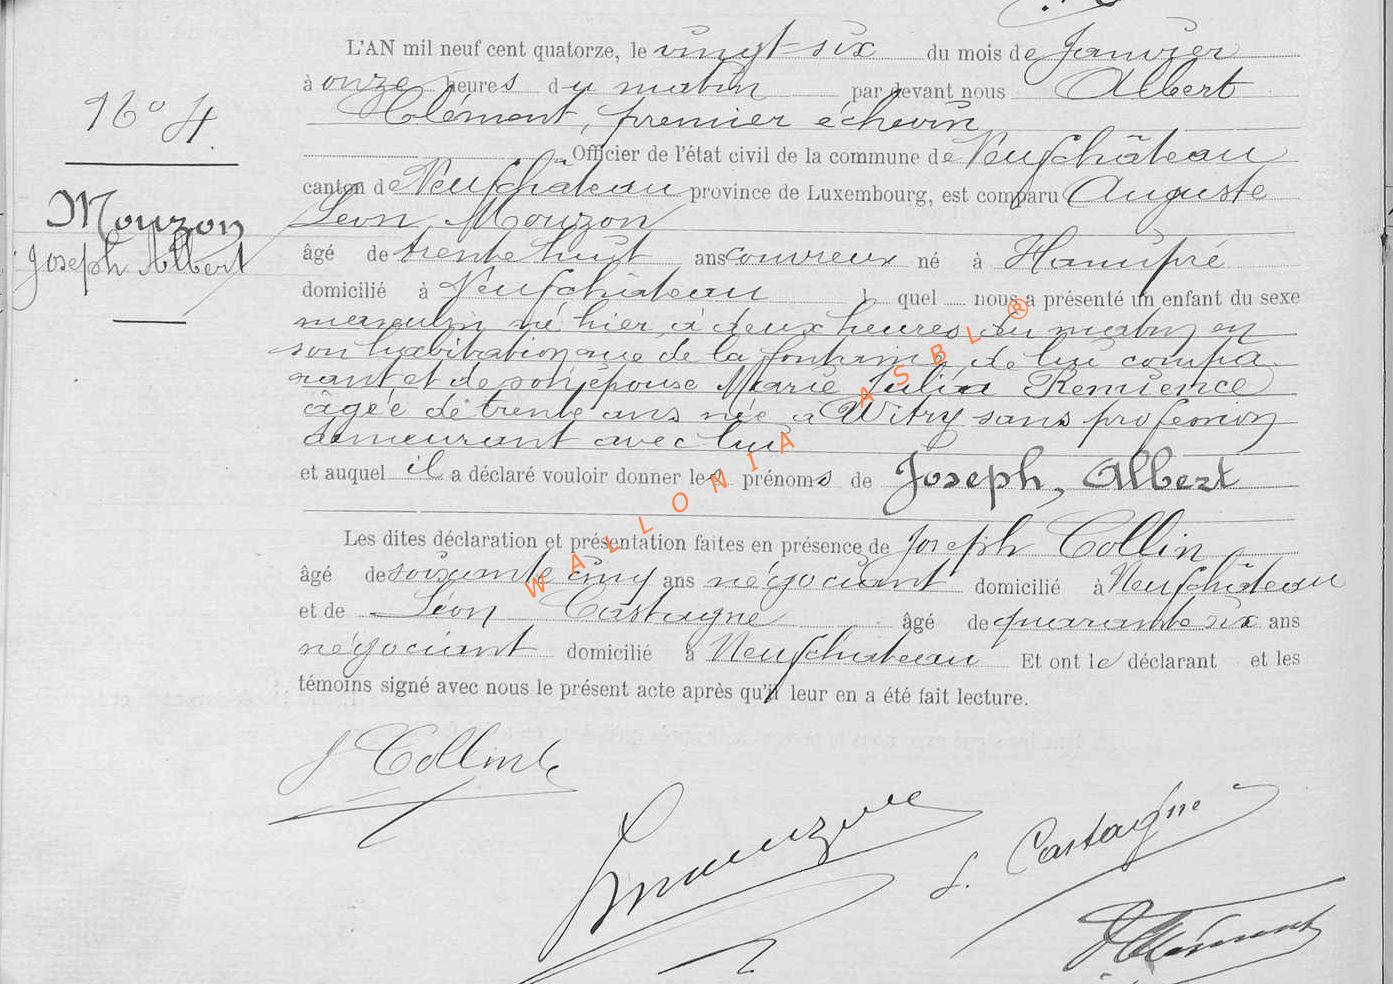 L'AN mil neuf cent quatorze, le vingt-six du mois de Janvier
à onze heures du matin par devant nous Albert
Clément, premier échevin
Officier de l'état civil de la commune de Neufchâteau
canton de Neufchâteau province de Luxembourg, est comparu Auguste
Léon Mouzon
âgé de trente huit ans couvreur né à Hamipré
domicilié à Neufchâteau lequel nous a présenté un enfant du sexe
masculin né hier à deux heures du matin en
son habitation rue de la fontaine, de lui compa
rant et de son épouse Marie Julia Remience
âgée de trente ans née à Witry sans profession
demeurant avec lui
et auquel il a déclaré vouloir donner les prénoms de Joseph, Albert
Les dites déclaration et présentation faites en présence de Joseph Collin
âgé de soixante cinq ans négociant domicilié à Neufchâteau
et de Léon Castaigne âgé de quarante six ans
négociant domicilié à Neufchateau Et ont le déclarant et les
témoins signé avec nous le présent acte après qu'il leur en a été fait lecture.
N° 4.
Mouzon
Joseph Albert
J Collin
L. Castaigne
Clément
WALLONIA ASBL ®